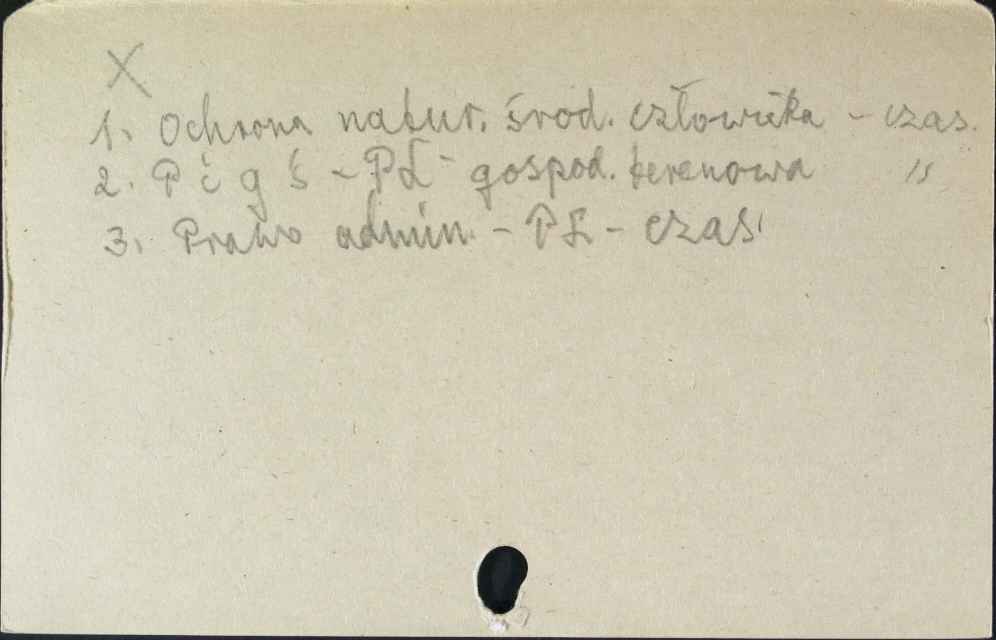 X
1. Ochrona natur. środ. człowieka - czas.
2. P i g ś - PL - gospod. terenowa "
3. Prawo admin. - PL - czas.